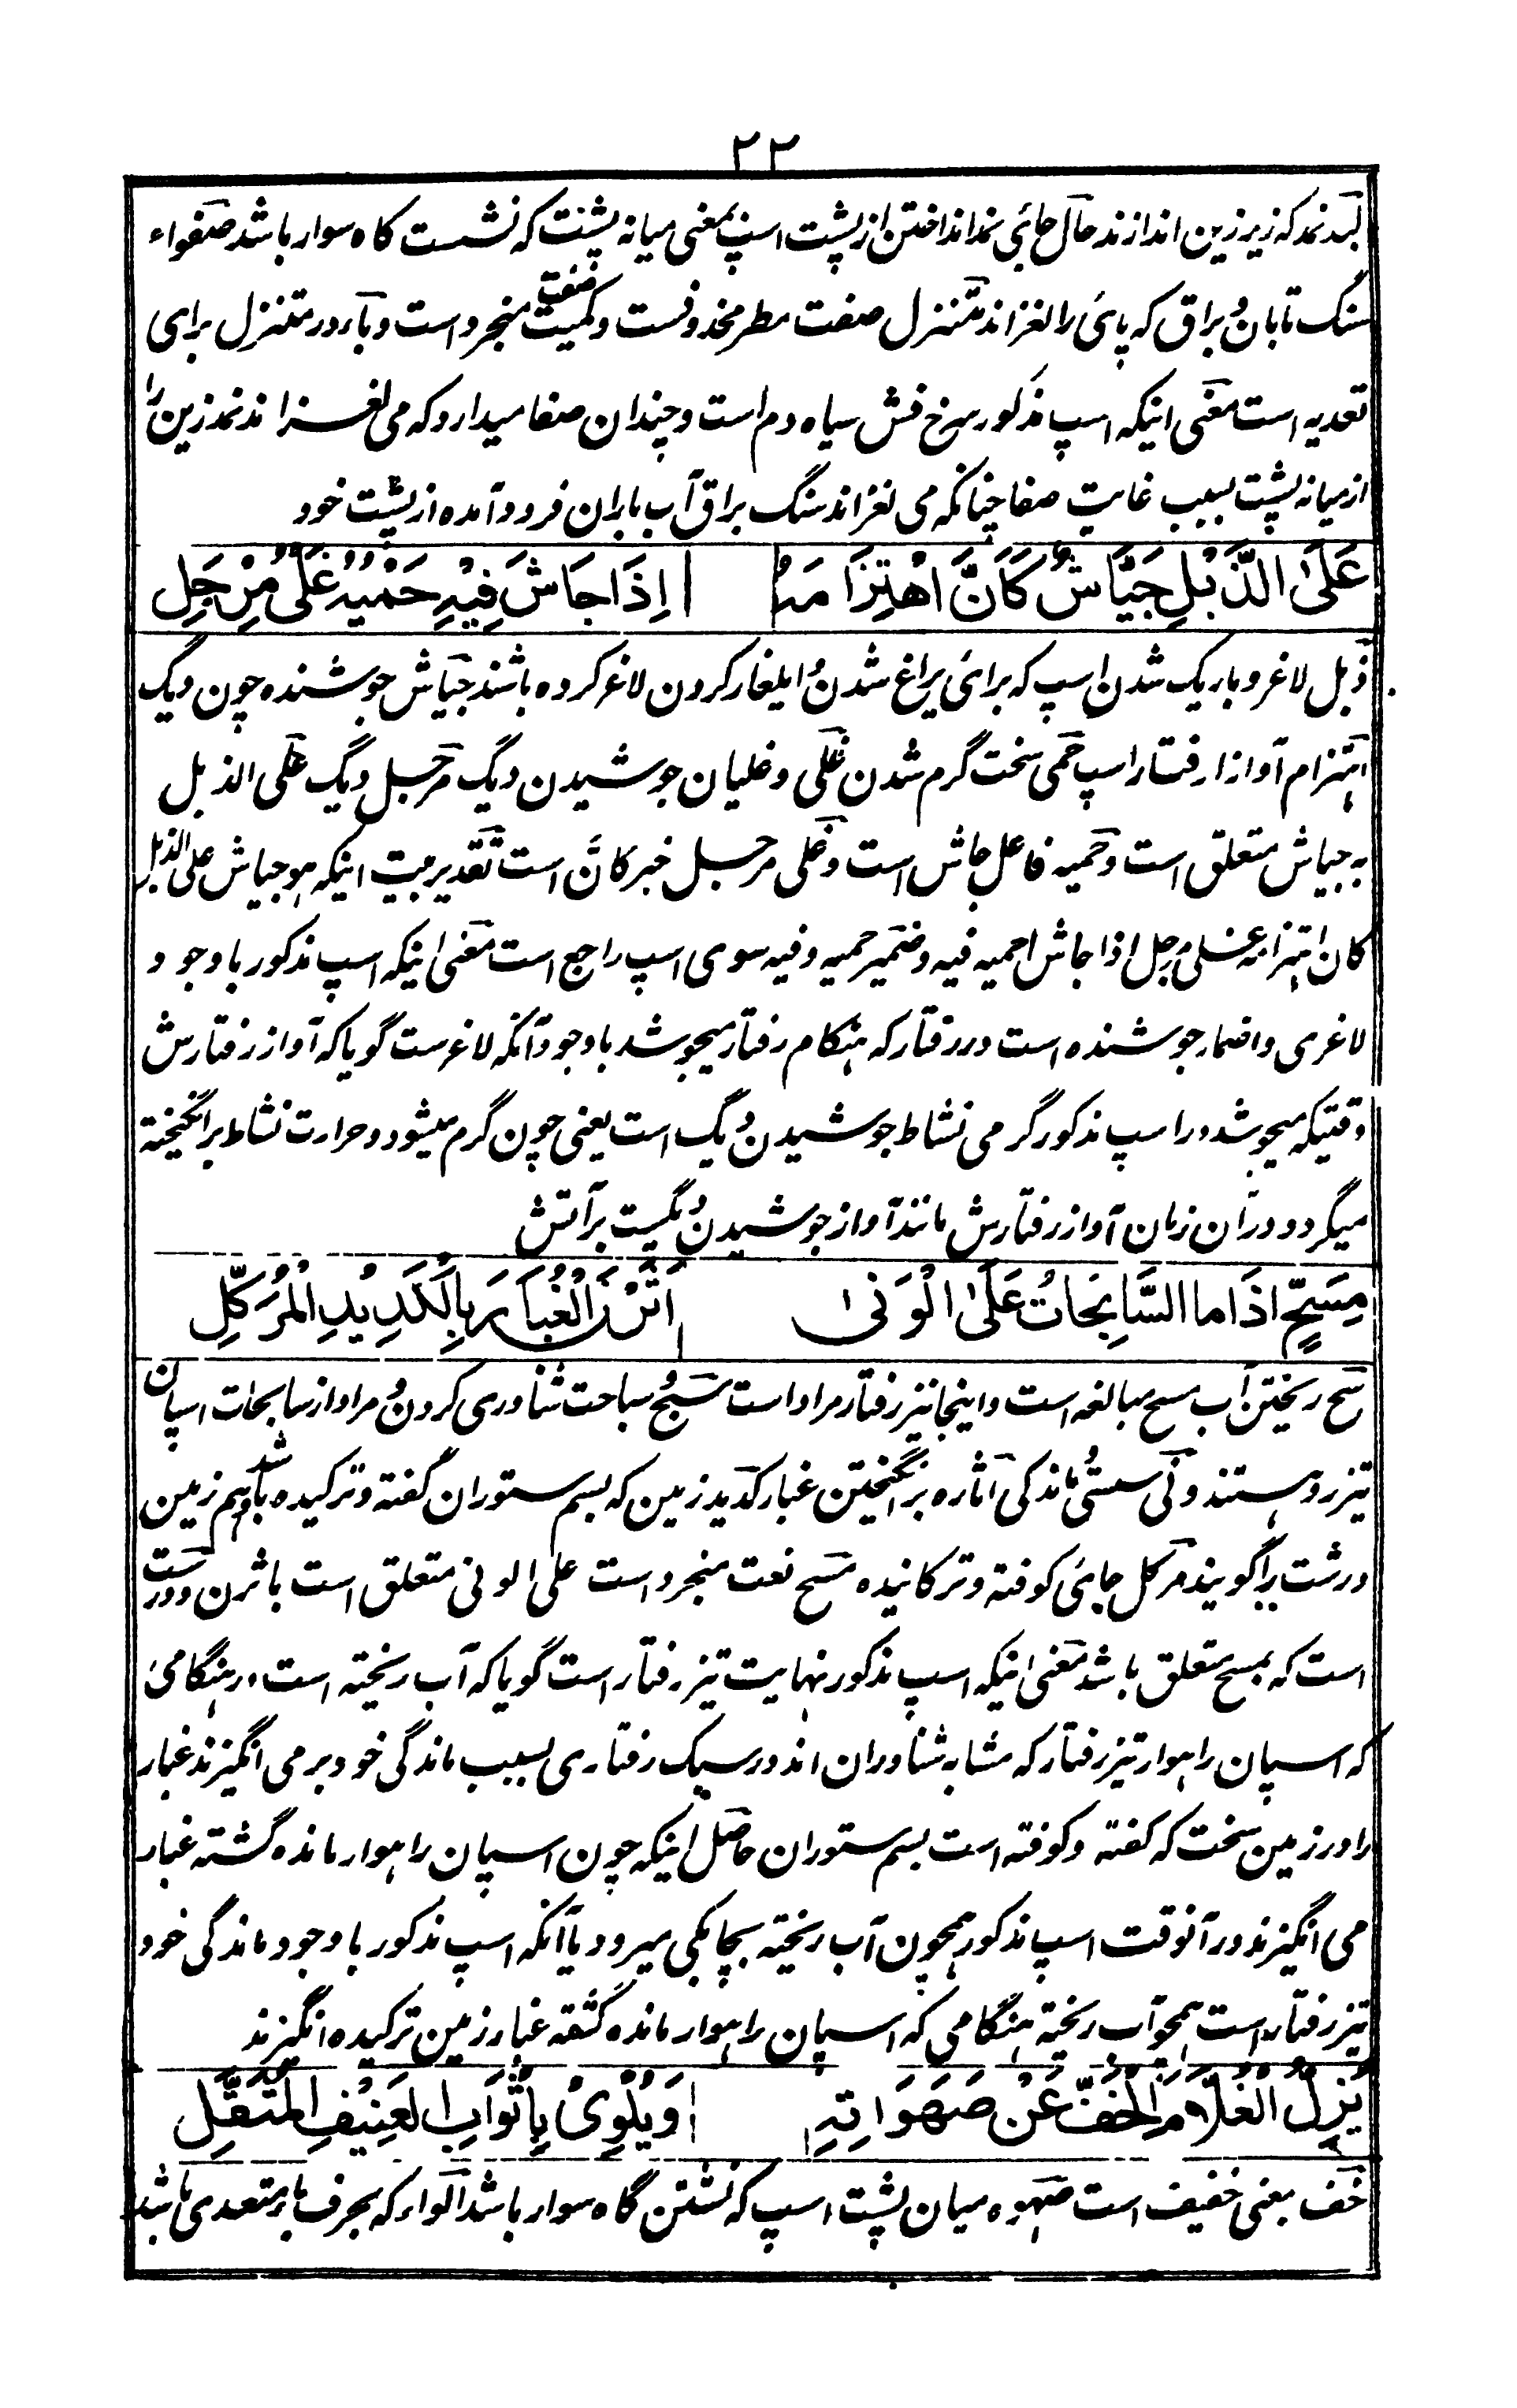 ۲۲
لبد نمد که زیر زین اندازند حال جائی نمد انداختن از پشت اسپ بمعنی میانه پشت که نشست کاه سوار باشد صفواء
سنگ تابان و براق که پای را لغزاند متنزل صفت مطر محذوفست و کمیت صفت منجرد است و باء در متنزل برای
تعدیه است معنی اینکه اسپ مذکور سرخ فش سیاه دم است و چندان صفا میدارد که می لغزاند نمد زین را
از میانه پشت بسبب غایت صفا چنانکه می لغزاند سنگ براق آب باران فرود آمده از پشت خود
عَلَى الذَّبْلِ جَیَّاشٌ کَاَنَّ اهْتِزَامَهٗ اِذَا جَاشَ فِیْهِ حَمْیُهٗ غَلْیُ مِرْجَلِ
ذبل لاغر و باریک شدن اسپ که برای یراغ شدن و ایلغار کردن لاغر کرده باشند جیاش جوشنده چون دیگ
اهتزام آواز رفتار اسپ حمی سخت گرم شدن غلی و غلیان جوشیدن دیگ مرجل دیگ علی الذبل
به جیاش متعلق است و حمیه فاعل جاش است و غلی مرجل خبر کانّ است تقدیر بیت اینکه هو جیاش علی الذبل
کان اهتزامه غلی مرجل اذا جاش حمیه فیه و ضمیر حمیه و فیه سوی اسپ راجع است معنی اینکه اسپ مذکور باوجود
لاغری و اضمار جوشنده است در رفتار که هنکام رفتار میجوشد باوجود آنکه لاغرست گویا که آواز رفتارش
وقتیکه میجوشد در اسپ مذکور گرمی نشاط جوشیدن دیگ است یعنی چون گرم میشود و حرارت نشاط برانگیخته
میگردد دران زمان آواز رفتارش مانند آواز جوشیدن دیگست بر آتش
مِسَحٍّ اذَا ما السَّابِحَاتُ عَلَى الْوَنٰی اَثَرْنَ الْغُبَارَ بِالْکَدِیْدِ الْمُرَکَّلِ
سح ریختن آب مسح مبالغه است و اینجا تیز رفتار مراد است سبح و سباحت شناوری کردن و مراد از سابحات اسپان
تیزرو هستند ونی سستی و ماندگی اثاره برانگیختن غبار کدید زمین که بسم ستوران گفته و ترکیده شد باشد و هم زمین
درشت را گویند مرکل جای کوفته و ترکانیده مسح نعت منجرد است علی الونی متعلق است باثرن و درست
است که بمسح متعلق باشد معنی اینکه اسپ مذکور نهایت تیز رفتار است گویا که آب ریخته است در هنگامی
که اسپان راهوار تیز رفتار که مشابه شناوران اند در سبک رفتاری بسبب ماندگی خود برمی انگیزند غبار
را در زمین سخت که کفته و کوفته است بسم ستوران حاصل اینکه چون اسپان راهوار مانده گشته غبار
می انگیزند در آنوقت اسپ مذکور همچون آب ریخته بچابکی میرود یا آنکه اسپ مذکور باوجود ماندگی خود
تیز رفتار است همچو آب ریخته هنگامی که اسپان راهوار مانده گشته غبار زمین ترکیده انگیزند
یُزِلُّ الْغُلَامَ الْخِفَّ عَنْ صَهَوَاتِهٖ وَیُلْوِیْ بِاَثْوَابِ الْعَنِیْفِ الْمُثَقَّلِ
خف بمعنی خفیف است صهوه میان پشت اسپ که نشستن گاه سوار باشد الواء که بحرف باء متعدی باشد